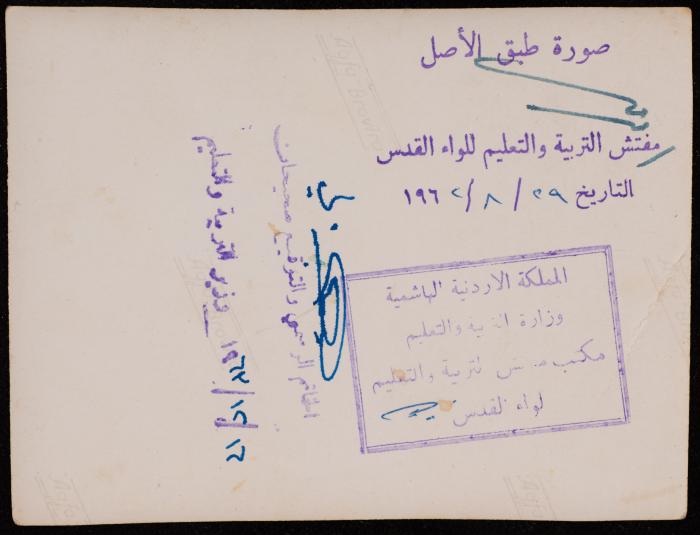 صورة طبق الأصل
مفتش التربية والتعليم للواء القدس
التاريخ ٢٩ / ٨ / ١٩٦٢
المملكة الاردنية الهاشمية
وزارة التربية والتعليم
مكتب مفتش التربية والتعليم
لواء القدس
الخاتم الرسمي والتوقيع صحيحان
وزير التربية والتعليم
Agfa Brovira